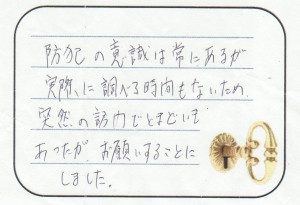 防犯の意識は常にあるが
実際に調べる時間もないため
突然の訪問でとまどいも
あったが、お願いすることに
しました。